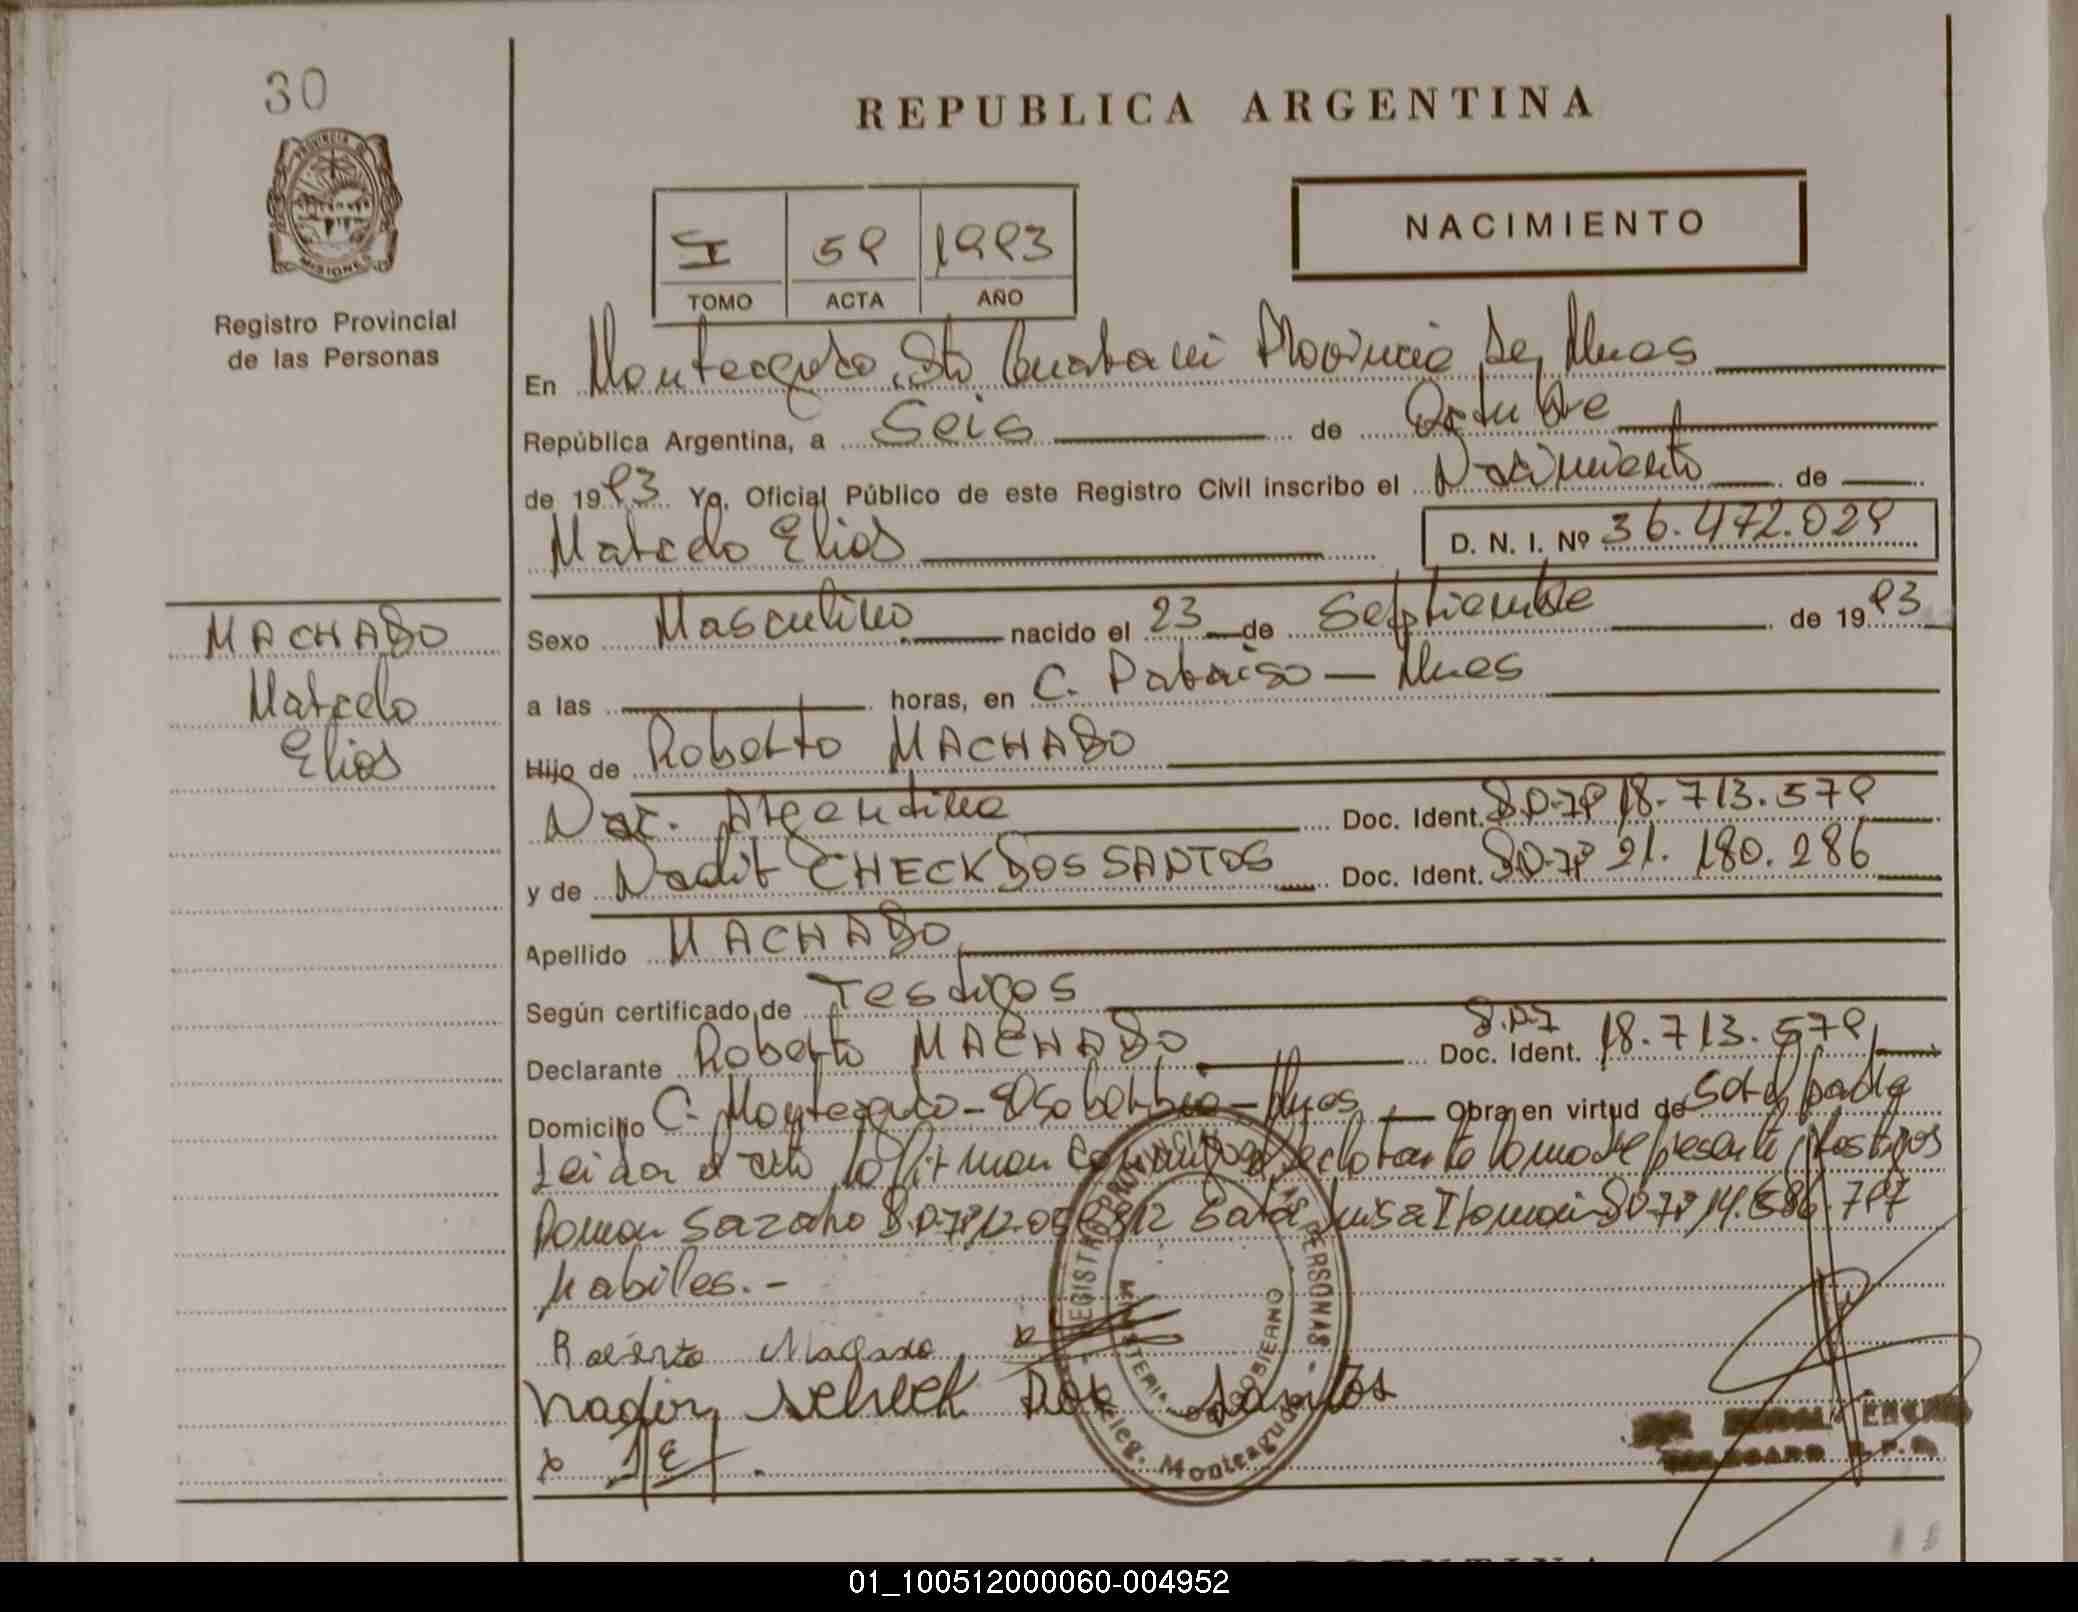 30
REPUBLICA ARGENTINA
PROVINCIA DE MISIONES
Registro Provincial
de las Personas
NACIMIENTO
I 59 1993
TOMO ACTA AÑO
En Monteagudo, Dto Guarani Provincia de Mnes
República Argentina, a Seis de Octubre
de 1993 Yo, Oficial Público de este Registro Civil inscribo el Nacimiento de
Marcelo Elios D. N. I. Nº 36.472.029
MACHADO
Marcelo
Elios
Sexo Masculino nacido el 23 de Septiembre de 1993
a las horas, en C. Paraiso - Mnes
Hijo de Roberto MACHADO
Nac. Argentina Doc. Ident. 18.713.579
y de Nadir CHECK DOS SANTOS Doc. Ident. 21.180.286
Apellido MACHADO
Según certificado de Testigos
Declarante Roberto MACHADO Doc. Ident. 18.713.579
Domicilio C. Monteagudo - Mnes Obra en virtud de ser el padre
Leida el acta la firman conmigo el declarante la madre presente testigos
Ramon 14.586.797
habiles.-
Nadir Scheck Dos Santos
REGISTRO PROVINCIAL DE LAS PERSONAS
MINISTERIO DE GOBIERNO
Deleg. Monteagudo
ARGENTINA
01_100512000060-004952